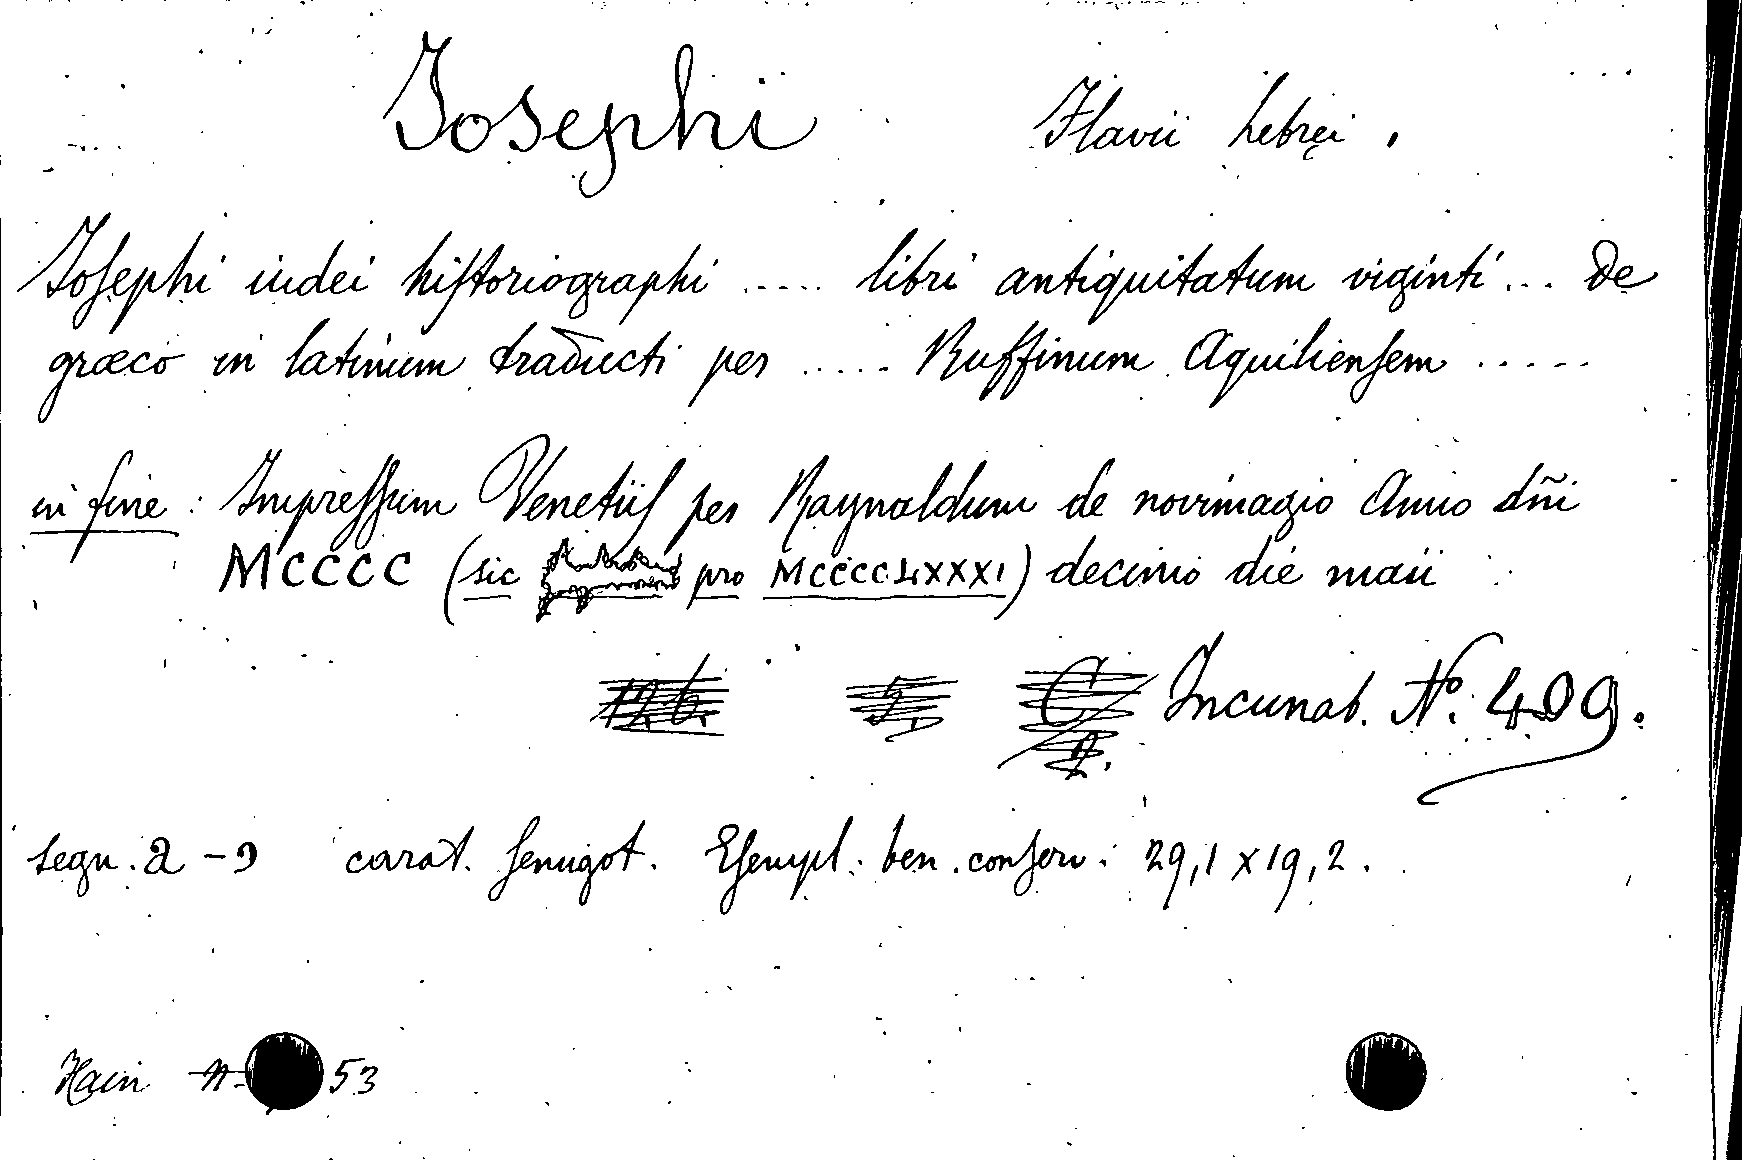 Iosephi Flavii hebręi.
Ioſephi iudei hiſtoriographi ..... libri antiquitatum viginti... de
græco in latinum traducti per ..... Ruffinum Aquilienſem .....
in fine: Impreſſum Venetiiſ per Raynaldum de novimagio Anno dñi
MCCCC (sic pro MCCCCLXXXI) decimo die maii
Incunab. Nº. 409.
segn. a - 9 carat. ſemigot. Eſempl. ben conſerv: 29,1 x 19,2.
Hain 53